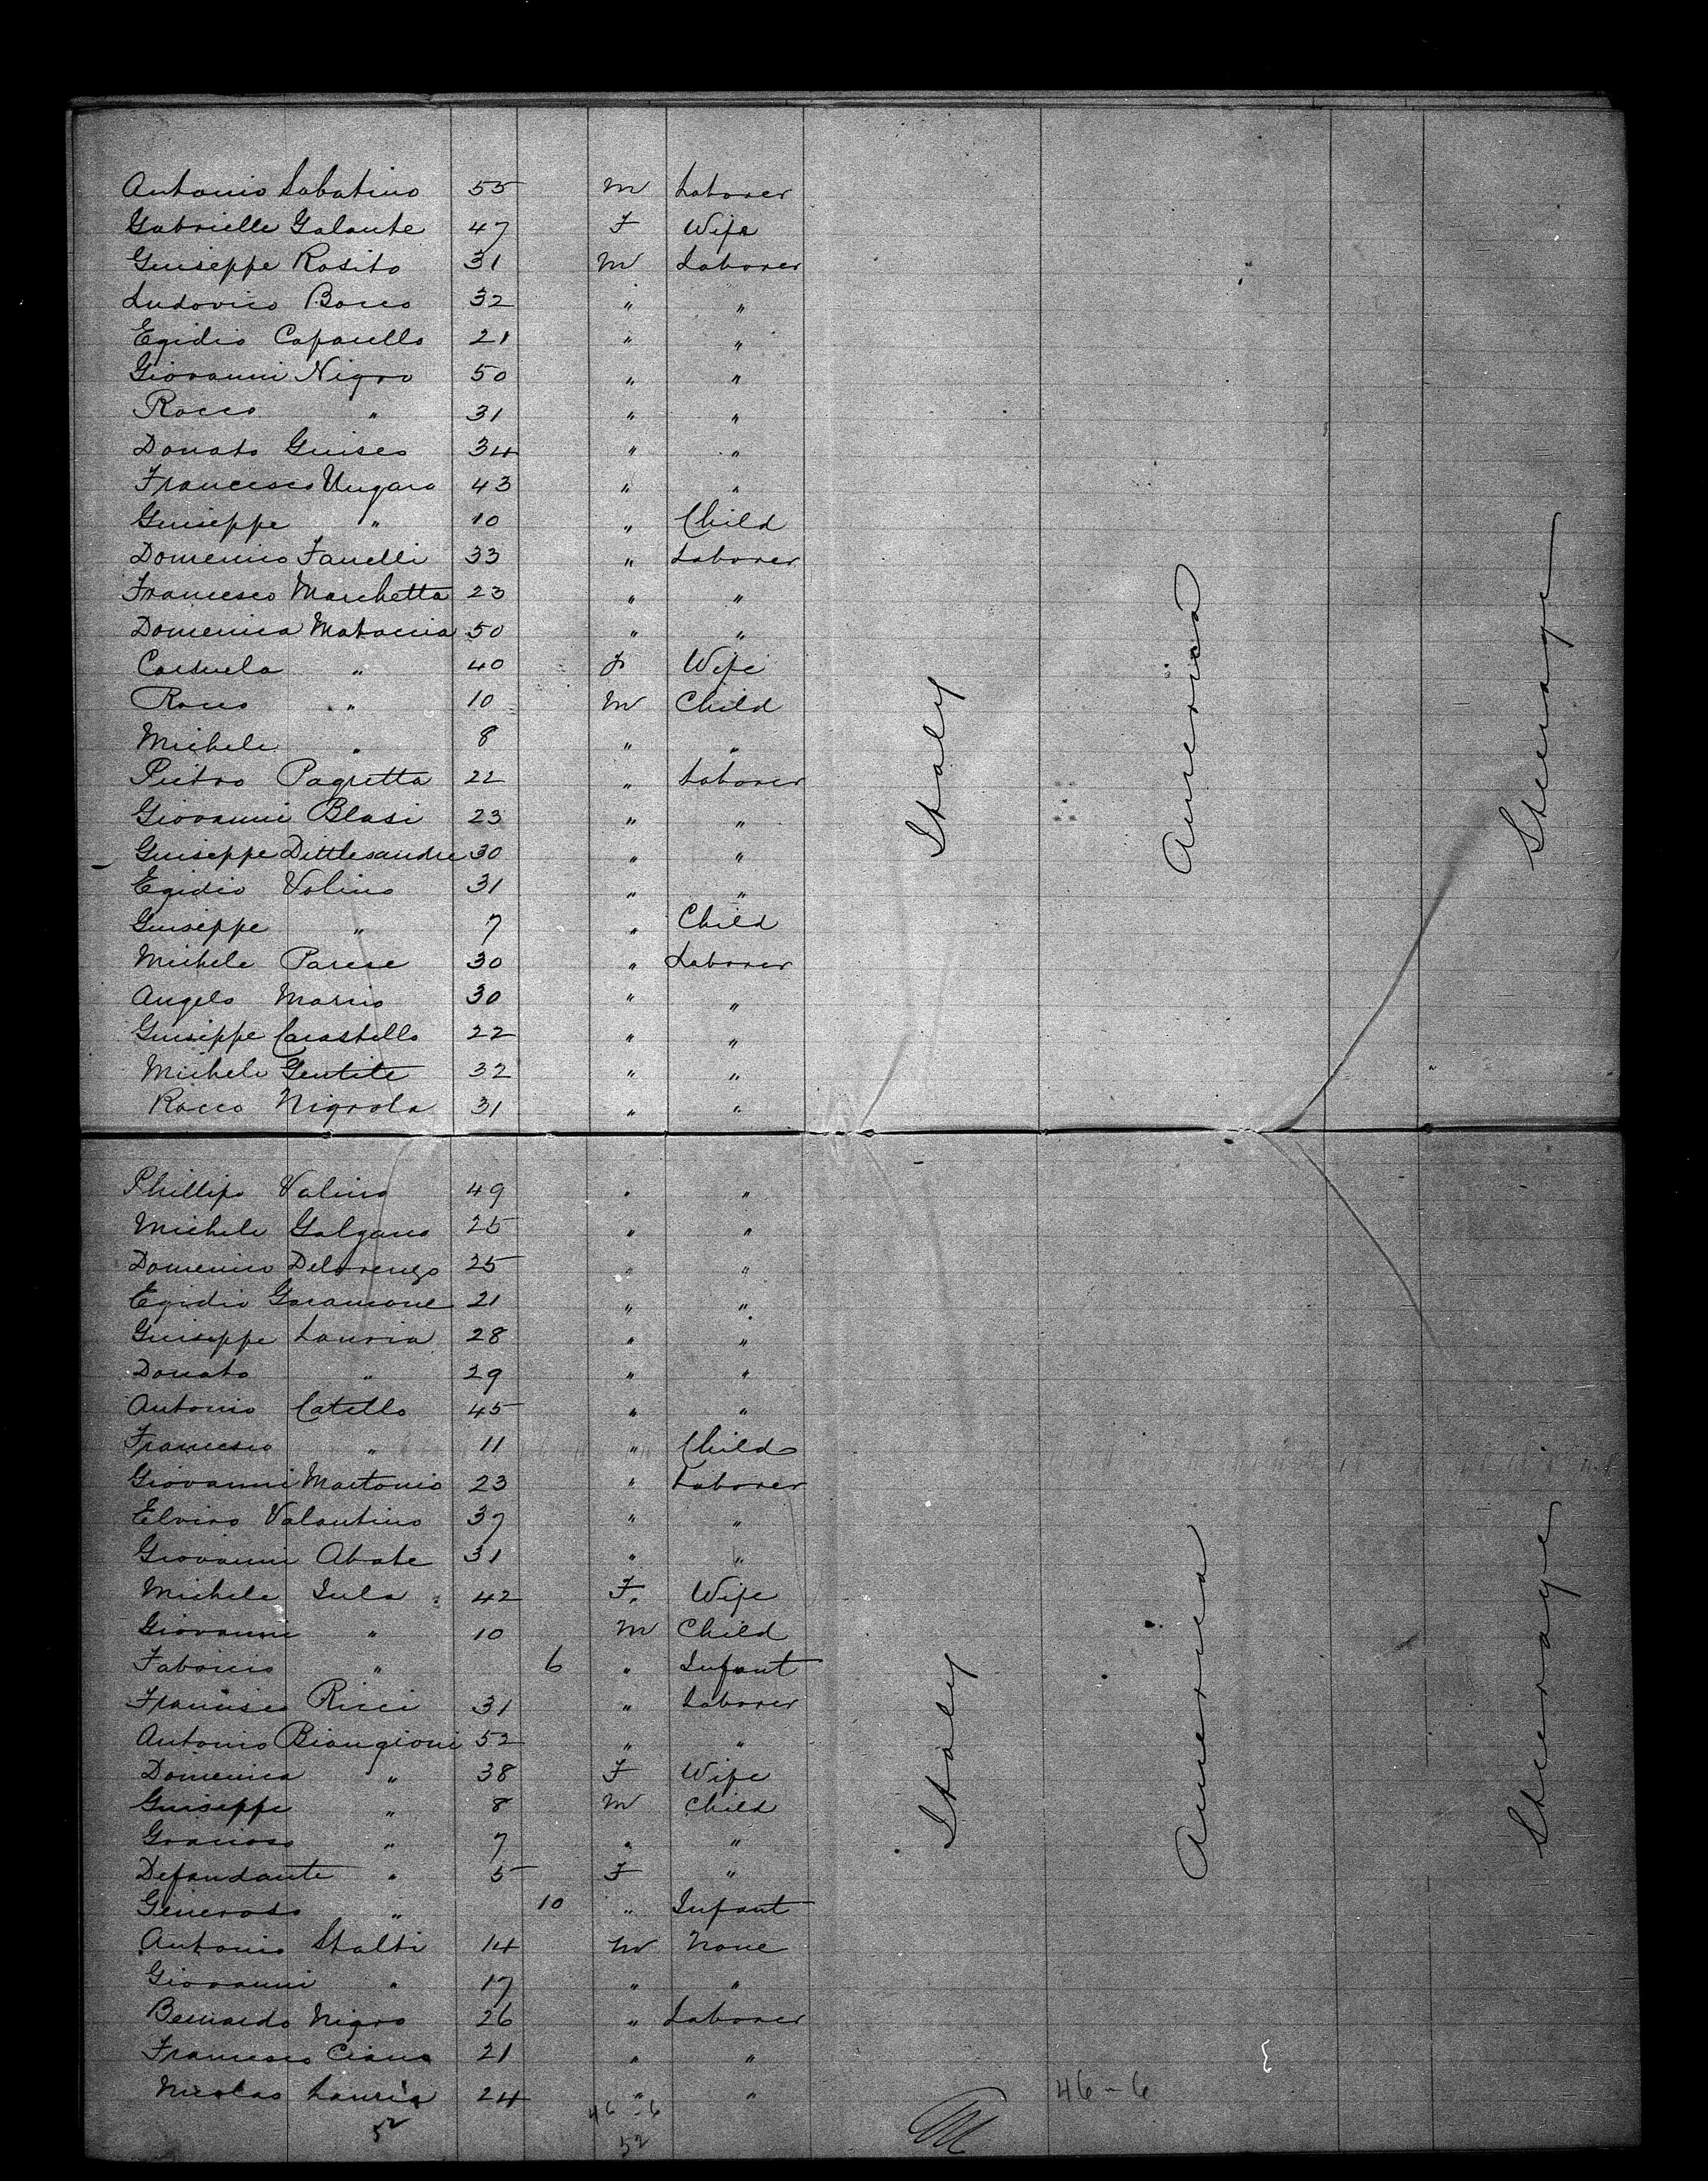 Antonio Sabatino 55 M Laborer
Gabrielle Galante 47 F Wife
Guiseppe Rosito 31 M Laborer
Ludovico Bocco 32 " "
Egidio Caparello 21 " "
Giovanni Nigro 50 " "
Rocco " 31 " "
Donato Guiseo 34 " "
Francesco Ungaro 43 " "
Guiseppe " 10 " Child
Domenico Fanelli 33 " Laborer
Francesco Marchetta 23 " "
Domenica Mataccia 50 " "
" 40 F Wife
Rocco " 10 M Child
Michele " 8 " "
Pietro Pagretta 22 " Laborer
Giovanni Blasi 23 " "
Guiseppe Dittlesandre 30 " "
Egidio Volino 31 " "
Guiseppe " 7 " Child
Michele Parese 30 " Laborer
Angelo Marno 30 " "
Guiseppe Carastello 22 " "
Michele Gentile 32 " "
Rocco Nigrola 31 " "
Italy
America
Steerage
Phillipo Valino 49 " "
Michele Galgano 25 " "
Domenico Delorenzo 25 " "
Egidio Garamone 21 " "
Guiseppe Lauria 28 " "
Donato " 29 " "
Antonio Catello 45 " "
Francesco " 11 " Child
Giovanni Martonio 23 " Laborer
Elviro Valantino 37 " "
Giovanni Abate 31 " "
Michele Iula 42 F. Wife
Giovanni " 10 M Child
Fabricio " 6 " Infant
Francisco Ricci 31 " Laborer
Antonio Biangioni 52 " "
Domenica " 38 F Wife
Guiseppe " 8 M Child
Gracioso " 7 " "
Defandante " 5 F "
Generoso " 10 " Infant
Antonio Stalti 14 M None
Giovanni " 17 " "
Bernardo Nigro 26 " Laborer
Francesco Ciano 21 " "
Nicolas Lauria 24 " "
Italy
America
Steerage
46-6
46-6
52
52